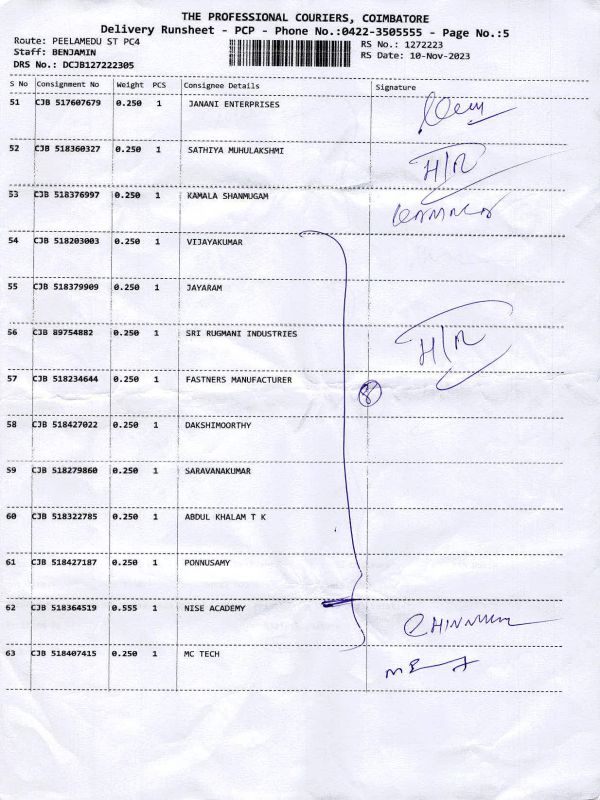 THE PROFESSIONAL COURIERS, COIMBATORE
Delivery Runsheet - PCP - Phone No.:0422-3505555 - Page No.:5
Route: PEELAMEDU ST PC4 RS No.: 1272223
Staff: BENJAMIN RS Date: 10-Nov-2023
DRS No.: DCJB127222305
S No Consignment No Weight PCS Consignee Details Signature
51 CJB 517607679 0.250 1 JANANI ENTERPRISES
52 CJB 518360327 0.250 1 SATHIYA MUHULAKSHMI H/R
53 CJB 518376997 0.250 1 KAMALA SHANMUGAM
54 CJB 518203003 0.250 1 VIJAYAKUMAR
55 CJB 518379909 0.250 1 JAYARAM
56 CJB 89754882 0.250 1 SRI RUGMANI INDUSTRIES H/R
57 CJB 518234644 0.250 1 FASTNERS MANUFACTURER 8
58 CJB 518427022 0.250 1 DAKSHIMOORTHY
59 CJB 518279860 0.250 1 SARAVANAKUMAR
60 CJB 518322785 0.250 1 ABDUL KHALAM T K
61 CJB 518427187 0.250 1 PONNUSAMY
62 CJB 518364519 0.555 1 NISE ACADEMY
63 CJB 518407415 0.250 1 MC TECH